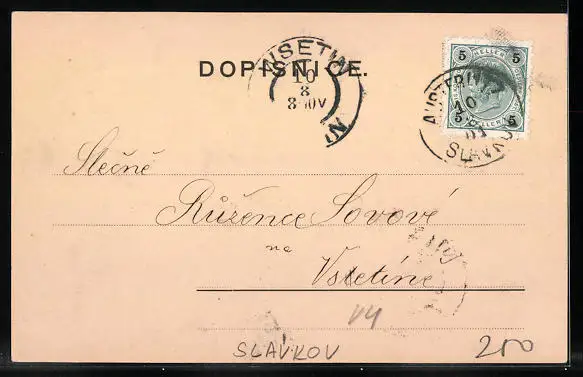 DOPISNICE.
VSETIN
10
8
5 5
HELLER
5 5
AUSTERLITZ
10
01
SLAVKOV
Slečně
Růžence Sovové
na
Vsetíně
SLAVKOV
200